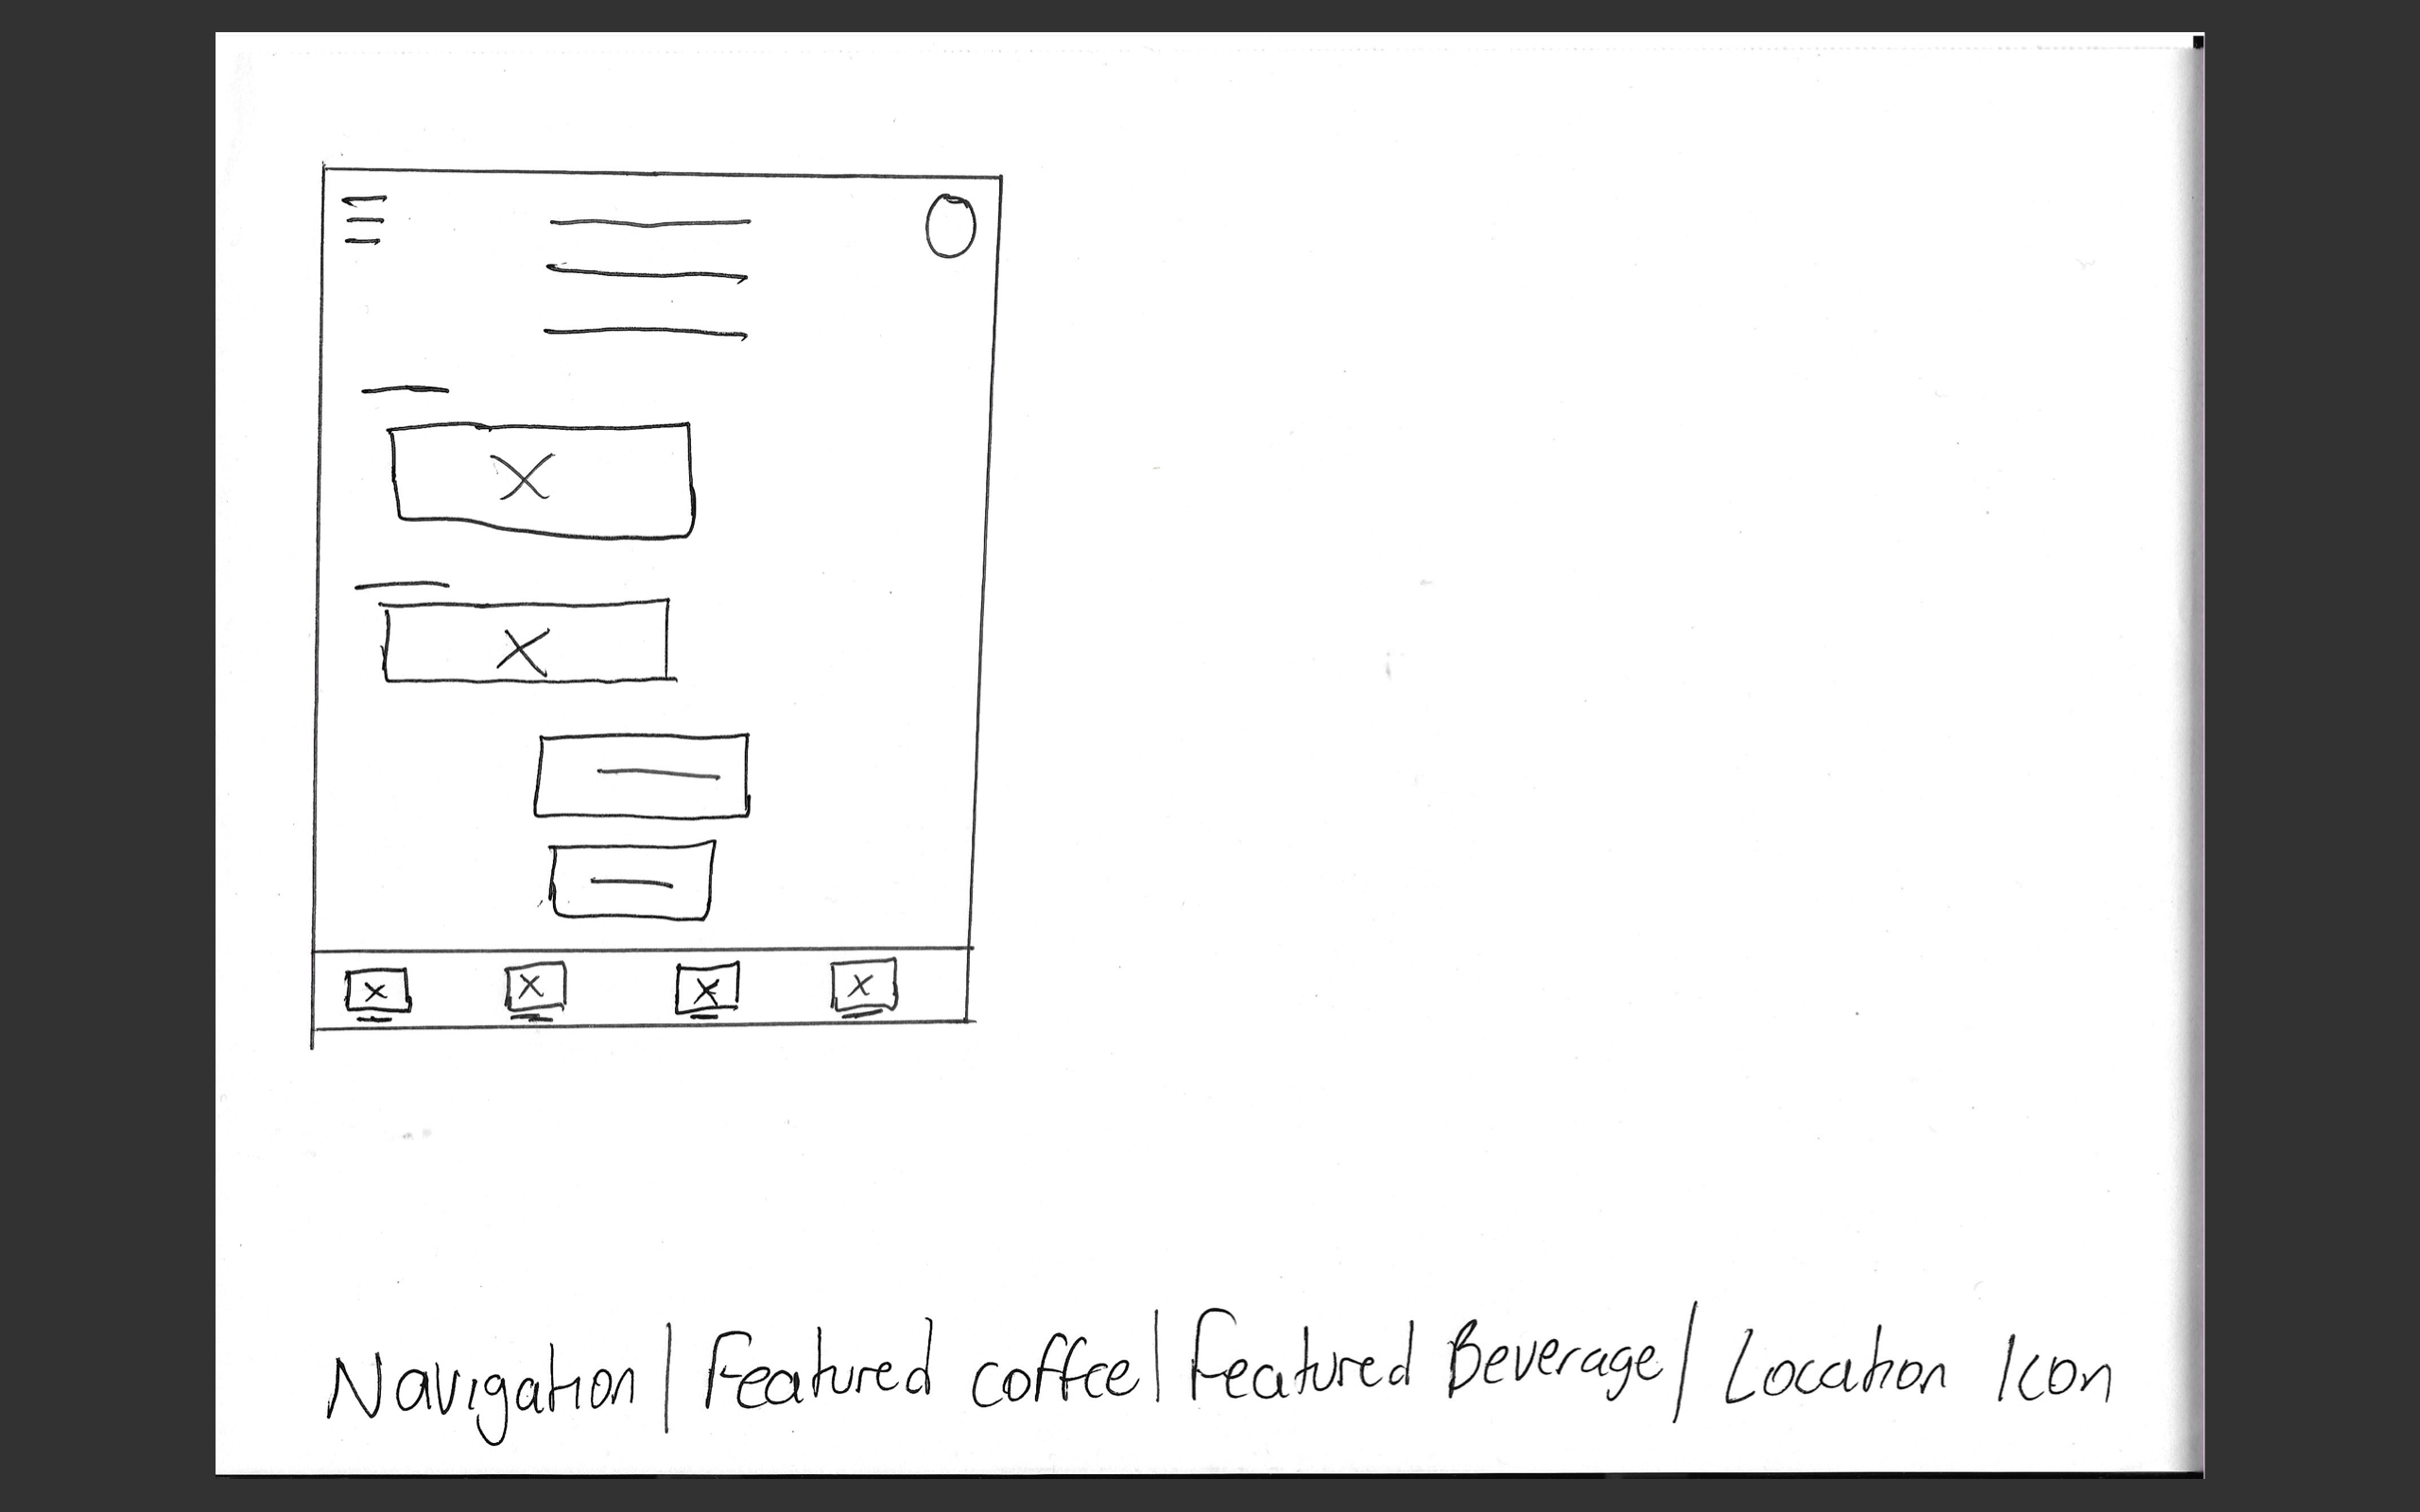 Navigation | Featured coffee | Featured Beverage / Location Icon